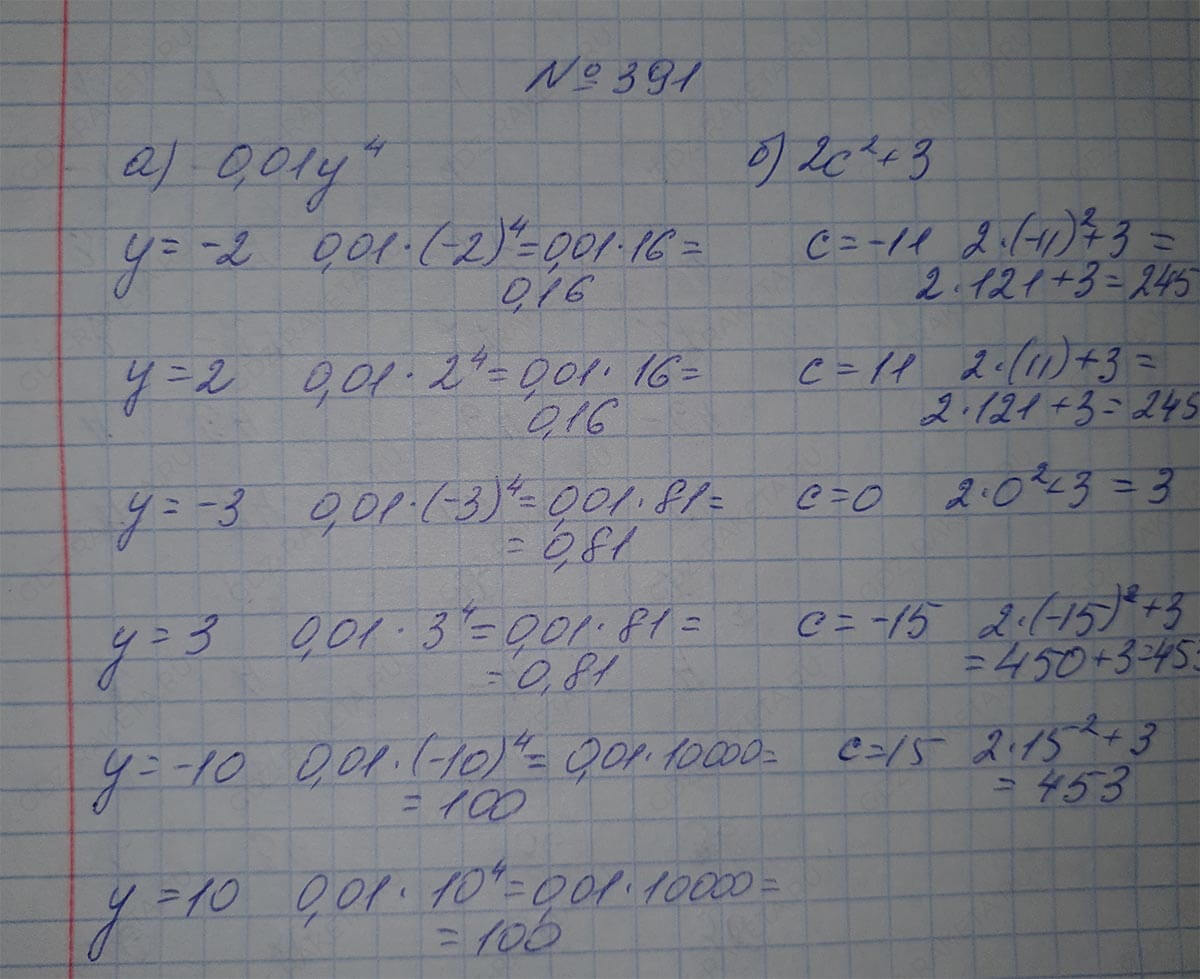 № 391
а) 0,01y⁴
y = -2 0,01·(-2)⁴=0,01·16=
0,16
y = 2 0,01·2⁴=0,01·16=
0,16
y = -3 0,01·(-3)⁴=0,01·81=
= 0,81
y = 3 0,01·3⁴=0,01·81=
= 0,81
y = -10 0,01·(-10)⁴= 0,01·10000=
= 100
y = 10 0,01·10⁴=0,01·10000=
= 100
б) 2c²+3
c = -11 2·(-11)²+3 =
2·121+3=245
c = 11 2·(11)+3=
2·121+3=245
c=0 2·0²+3 = 3
c = -15 2·(-15)²+3
=450+3=45
c=15 2·15²+3
= 453